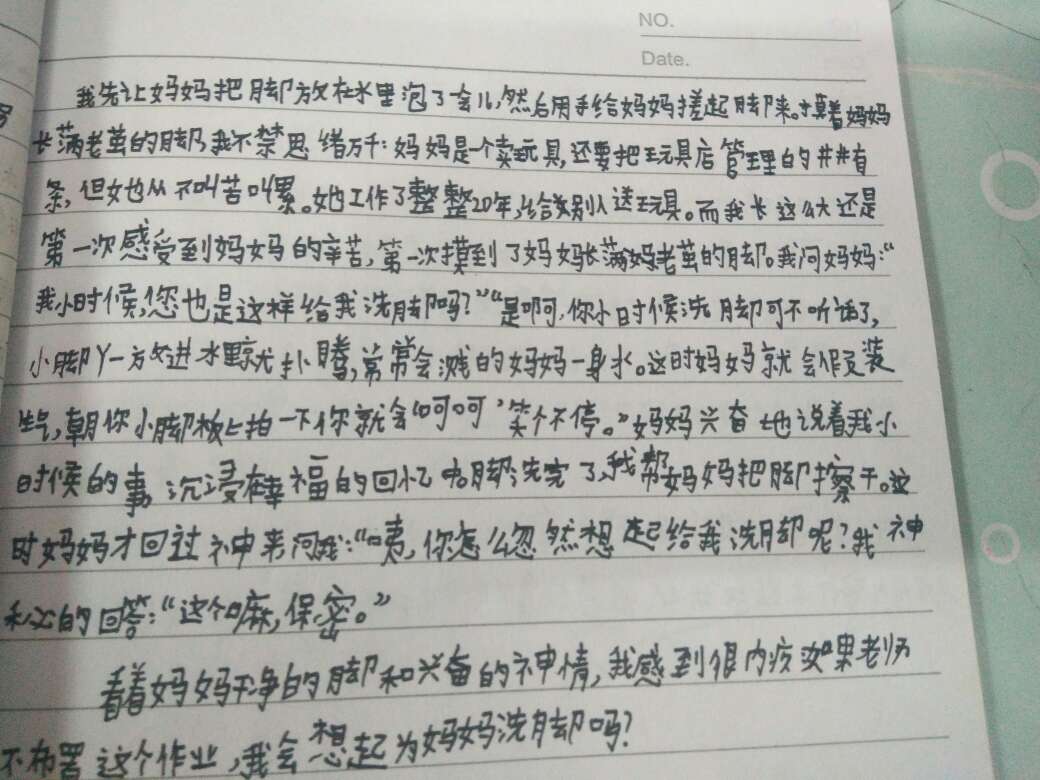 NO.
Date.
我先让妈妈把脚放在水里泡了一会儿,然后用手给妈妈搓起脚来。摸着妈妈
长满老茧的脚,我不禁思绪万千:妈妈是一个卖玩具,还要把玩具店管理的井井有
条,但她从不叫苦叫累。她工作了整整20年,给别人送玩具。而我长这么大还是
第一次感受到妈妈的辛苦,第一次摸到了妈妈长满老茧的脚。我问妈妈:“
我小时候,您也是这样给我洗脚吗?”“是啊,你小时候洗脚可不听话了,
小脚丫一放进水里就扑腾,常常会溅的妈妈一身水。这时妈妈就会假装
生气,朝你小脚板上拍一下你就会“呵呵”笑个不停。”妈妈兴奋地说着我小
时候的事沉浸在幸福的回忆中脚洗完了,我帮妈妈把脚擦干。这
时妈妈才回过神来问我:“咦,你怎么忽然想起给我洗脚呢?我神
秘的回答:“这个嘛,保密。”
看着妈妈干净的脚和兴奋的神情,我感到很内疚如果老师
不布置这个作业,我会想起为妈妈洗脚吗?